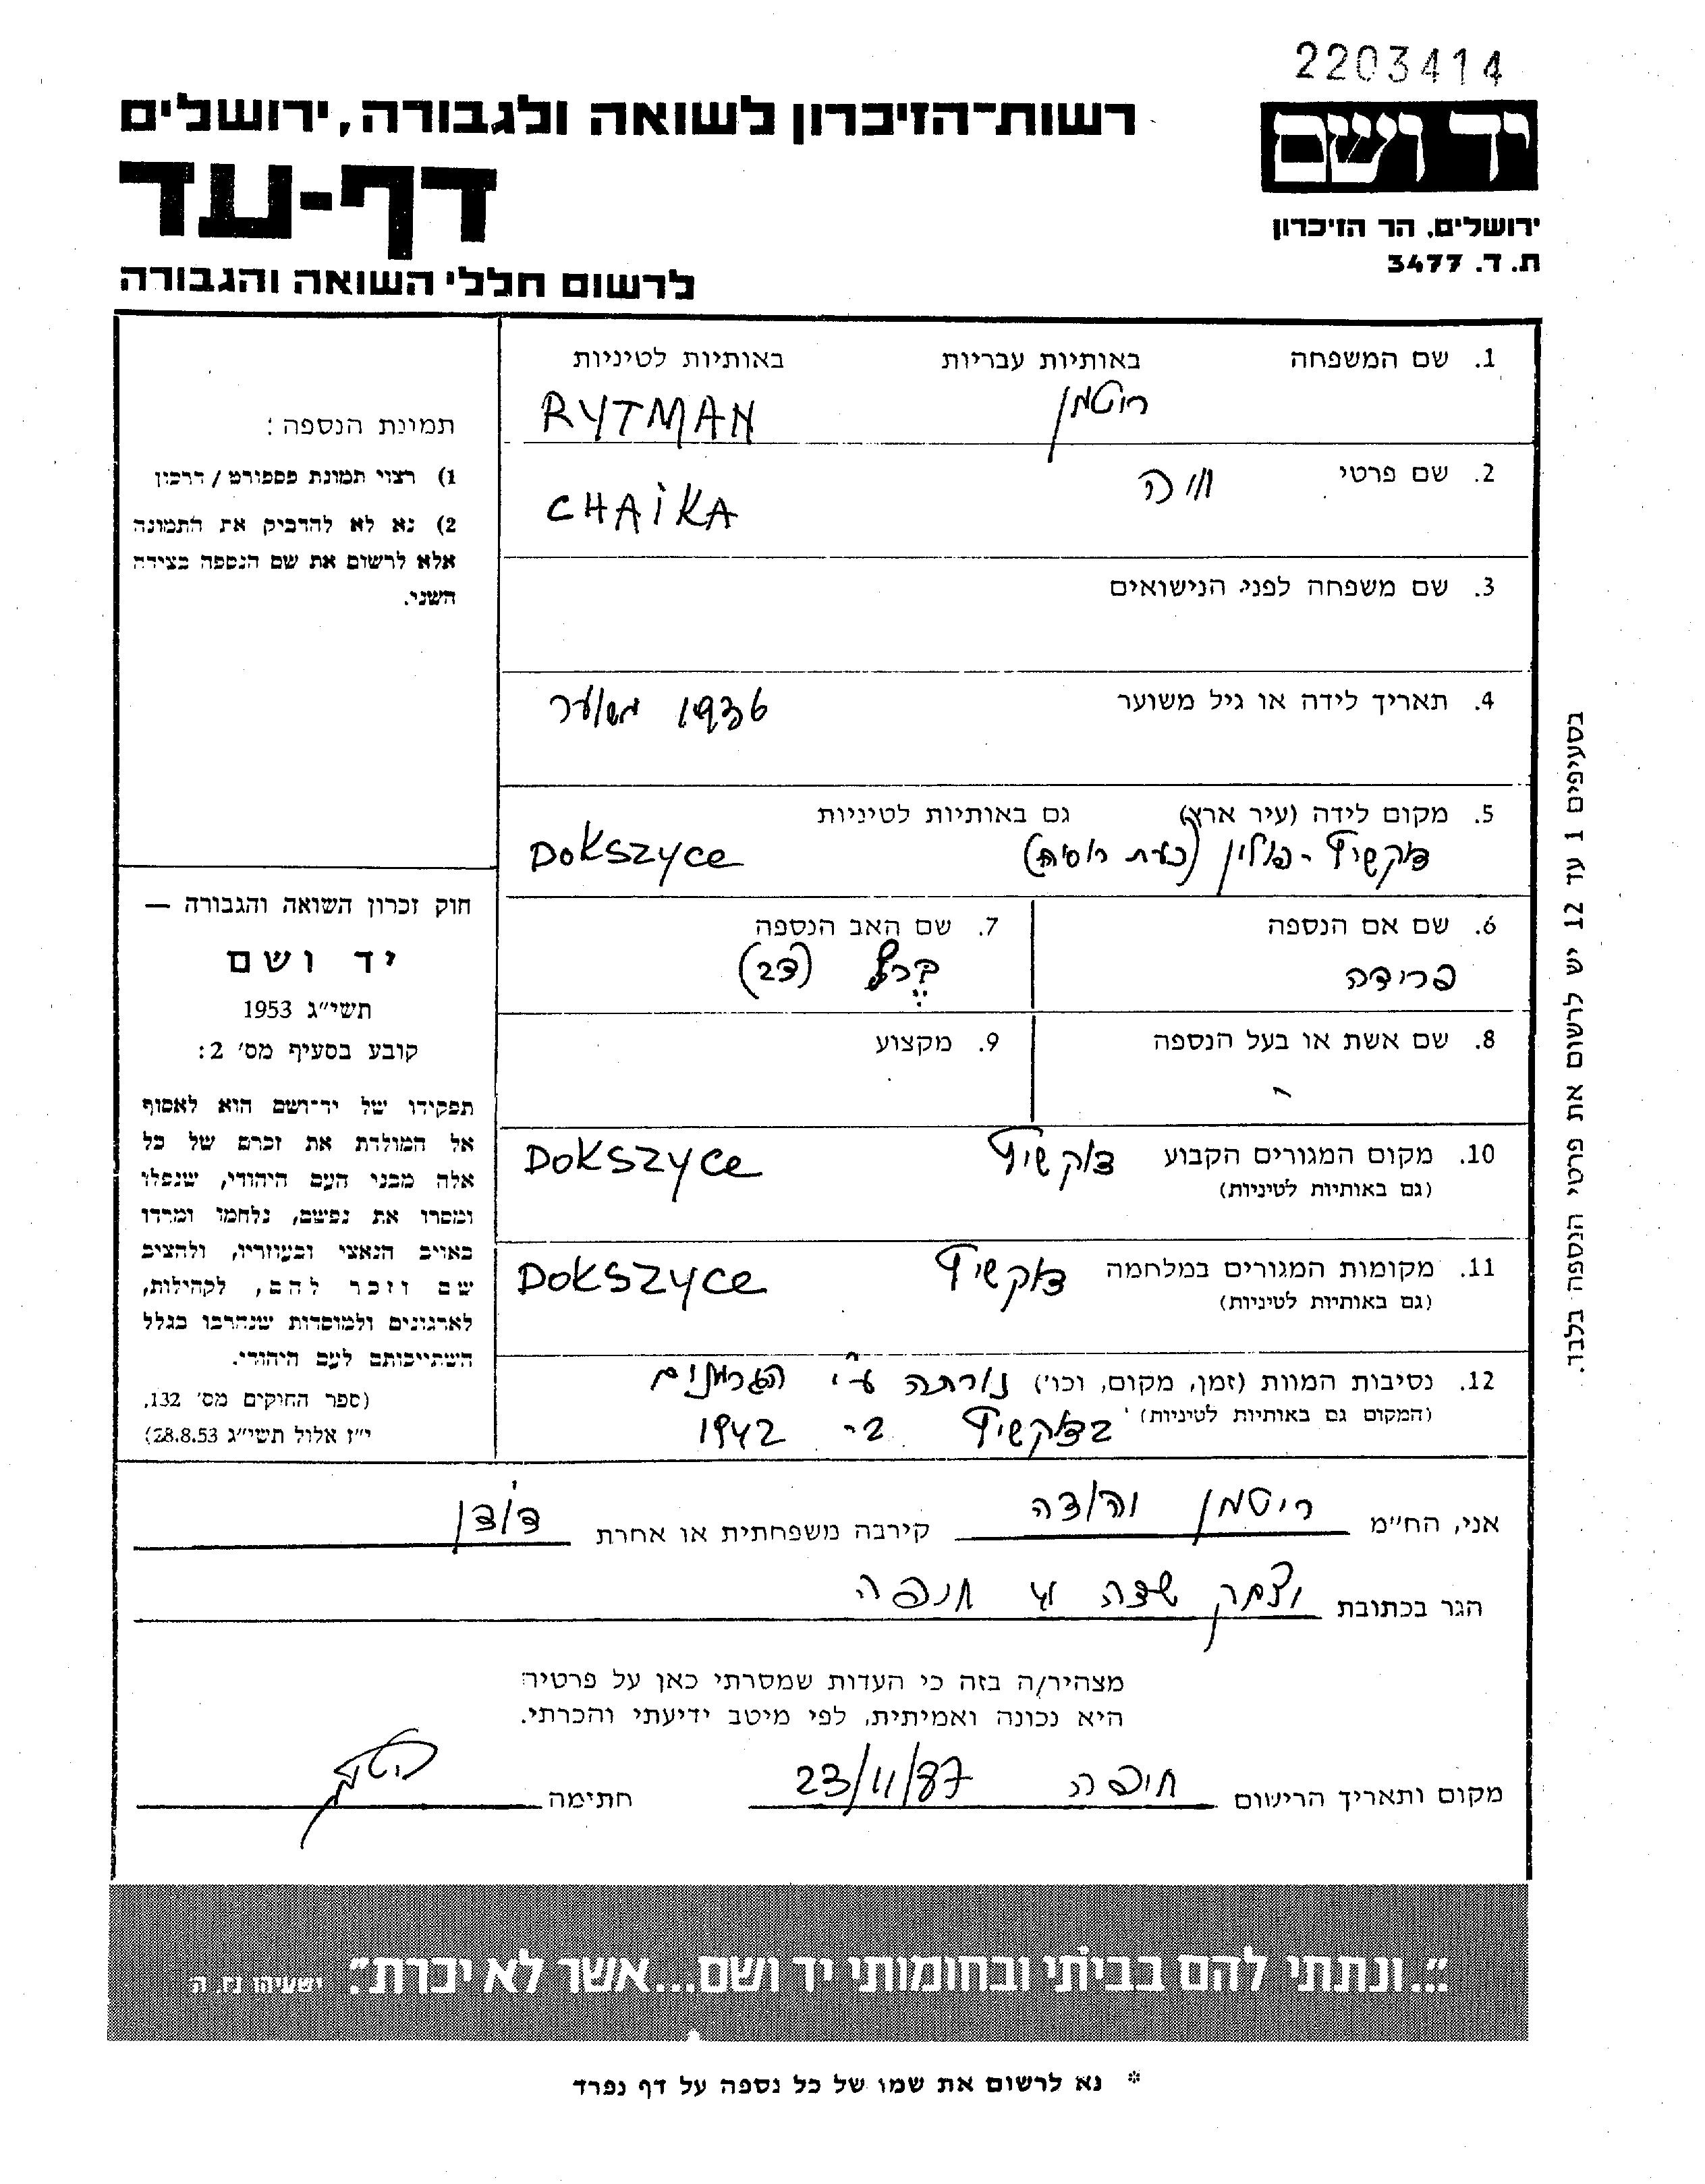 2203414
רשות־הזיכרון לשואה ולגבורה, ירושלים
יד ושם
דף-עד
ירושלים, הר הזיכרון
ת. ד. 3477
לרשום חללי השואה והגבורה
1. שם המשפחה באותיות עבריות באותיות לטיניות
ריטמן RYTMAN
2. שם פרטי חיה
CHAIKA
3. שם משפחה לפני הנישואים
4. תאריך לידה או גיל משוער
1936 משוער
5. מקום לידה (עיר ארץ) גם באותיות לטיניות
דוקשיץ - פולין (כעת רוסיה) DOKSZYCE
6. שם אם הנספה
פרידה
7. שם האב הנספה
ברל (דב)
8. שם אשת או בעל הנספה
9. מקצוע
10. מקום המגורים הקבוע דוקשיץ DOKSZYCE
(גם באותיות לטיניות)
11. מקומות המגורים במלחמה דוקשיץ DOKSZYCE
(גם באותיות לטיניות)
12. נסיבות המוות (זמן, מקום, וכו׳) נורתה ע"י הגרמנים
(המקום גם באותיות לטיניות) בדוקשיץ ב- 1942
תמונת הנספה:
1) רצוי תמונת פספורט / דרכון
2) נא לא להדביק את התמונה
אלא לרשום את שם הנספה בצידה
השני.
חוק זכרון השואה והגבורה —
יד ושם
תשי״ג 1953
קובע בסעיף מס׳ 2:
תפקידו של יד־ושם הוא לאסוף
אל המולדת את זכרם של כל
אלה מבני העם היהודי, שנפלו
ומסרו את נפשם, נלחמו ומרדו
באויב הנאצי ובעוזריו, ולהציב
שם וזכר להם, לקהילות,
לארגונים ולמוסדות שנחרבו בגלל
השתייכותם לעם היהודי.
(ספר החוקים מס׳ 132,
י״ז אלול תשי״ג 28.8.53)
בסעיפים 1 עד 12 יש לרשום את פרטי הנספה בלבד.
אני, הח״מ ריטמן קירבה משפחתית או אחרת דודן
הגר בכתובת יצחק שדה חיפה
מצהיר/ה בזה כי העדות שמסרתי כאן על פרטיה
היא נכונה ואמיתית, לפי מיטב ידיעתי והכרתי.
מקום ותאריך הרישום חיפה 23/11/87 חתימה
״...ונתתי להם בביתי ובחומותי יד ושם...אשר לא יכרת״. ישעיהו נו. ה
* נא לרשום את שמו של כל נספה על דף נפרד